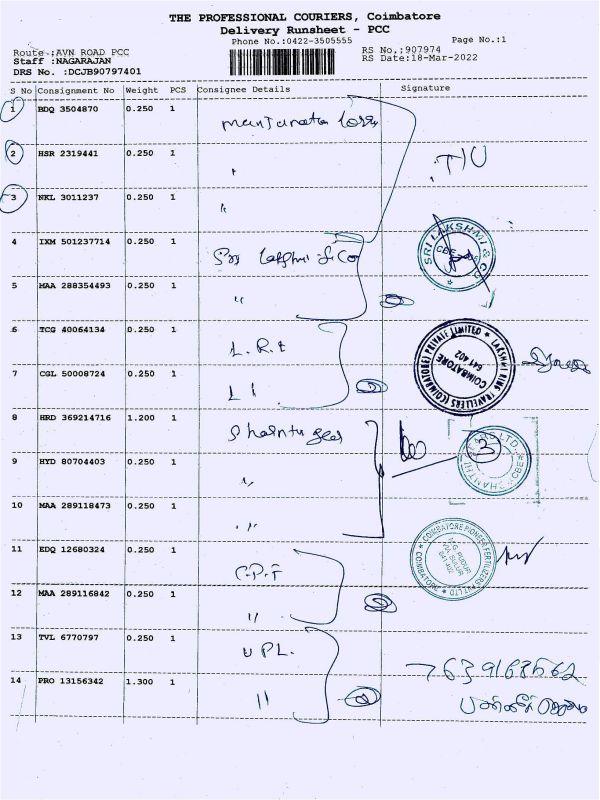 THE PROFESSIONAL COURIERS, Coimbatore
Delivery Runsheet - PCC
Phone No.:0422-3505555
Page No.:1
Route :AVN ROAD PCC
RS No.:907974
Staff :NAGARAJAN
RS Date:18-Mar-2022
DRS No. :DCJB90797401
S No Consignment No Weight PCS Consignee Details Signature
1 BDQ 3504870 0.250 1
2 HSR 2319441 0.250 1 "
3 NKL 3011237 0.250 1 "
4 IXM 501237714 0.250 1 Sri Lakshmi & Co
SRI LAKSHMI & CO
CBE
5 MAA 288354493 0.250 1 "
6 TCG 40064134 0.250 1 L.R.T
LAKSHMI RING TRAVELLERS (COIMBATORE) PRIVATE LIMITED
COIMBATORE
641 402
7 CGL 50008724 0.250 1
8 HRD 369214716 1.200 1 Shanthi gears
3
SHANTHI LTD. CBE
9 HYD 80704403 0.250 1 "
10 MAA 289118473 0.250 1 "
11 EDQ 12680324 0.250 1 C.P.F
COIMBATORE PIONEER FERTILIZERS PVT LTD
COIMBATORE
641 402
12 MAA 289116842 0.250 1 "
13 TVL 6770797 0.250 1 UPL.
14 PRO 13156342 1.300 1 "